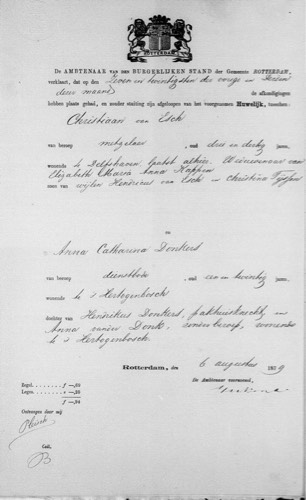 ROTTERDAM
De AMBTENAAR VAN DEN BURGERLIJKEN STAND der Gemeente ROTTERDAM,
verklaart, dat op den Zeven en twintigsten der vorige en Derden
dezer maand de afkondigingen
hebben plaats gehad, en zonder stuiting zijn afgeloopen van het voorgenomen Huwelijk, tusschen:
Christiaan van Esch
van beroep metselaar , oud drie en dertig jaren,
wonende te Delfshaven, Weduwnaar van
Elizabeth Maria Anna Kappen
zoon van wijlen Henricus van Esch en Christina Tijssen
en
Anna Catharina Donkers
van beroep dienstbode , oud een en twintig jaren,
wonende te 's Hertogenbosch
dochter van Henrikus Donkers, pakhuisknecht, en
Anna zonder beroep, wonende
te 's Hertogenbosch.
Rotterdam, den 6 augustus 1879
De Ambtenaar voornoemd,
Zegel f
Leges
f
Ontvangen door mij
Coll.
B